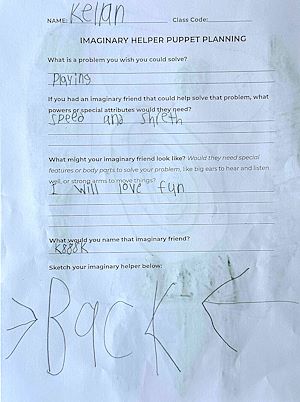 NAME: Kellan Class Code:
IMAGINARY HELPER PUPPET PLANNING
What is a problem you wish you could solve?
Playing
If you had an imaginary friend that could help solve that problem, what
powers or special attributes would they need?
Speed and shreth
What might your imaginary friend look like? Would they need special
features or body parts to solve your problem, like big ears to hear and listen
well, or strong arms to move things?
I will love fun
What would you name that imaginary friend?
Sketch your imaginary helper below:
BacK